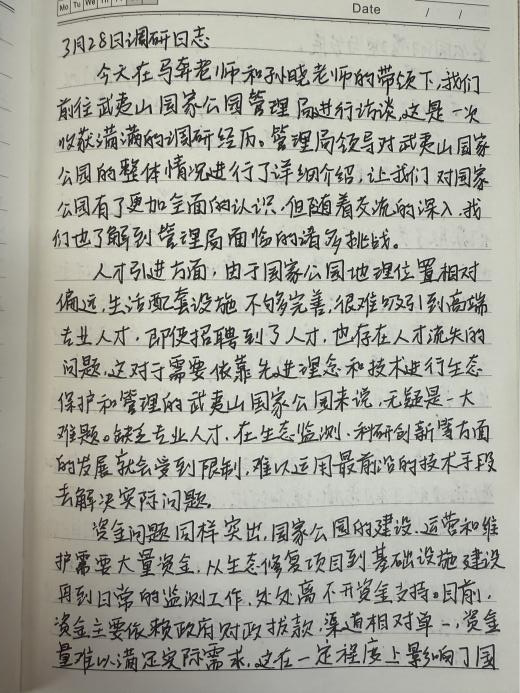 Mo Tu We Th Fr
Date / /
3月28日调研日志
今天在马奔老师和孙晓老师的带领下,我们
前往武夷山国家公园管理局进行访谈,这是一次
收获满满的调研经历。管理局领导对武夷山国家
公园的整体情况进行了详细介绍,让我们对国家
公园有了更加全面的认识,但随着交流的深入,我
们也了解到管理局面临的诸多挑战。
人才引进方面,由于国家公园地理位置相对
偏远,生活配套设施不够完善,很难吸引到高端
专业人才,即便招聘到了人才,也存在人才流失的
问题,这对于需要依靠先进理念和技术进行生态
保护和管理的武夷山国家公园来说,无疑是一大
难题。缺乏专业人才,在生态监测、科研创新等方面
的发展就会受到限制,难以运用最前沿的技术手段
去解决实际问题。
资金问题同样突出,国家公园的建设、运营和维
护需要大量资金,从生态修复项目到基础设施建设
再到日常的监测工作,处处离不开资金支持。目前,
资金主要依赖政府财政拨款,渠道相对单一,资金
量难以满足实际需求,这在一定程度上影响了国